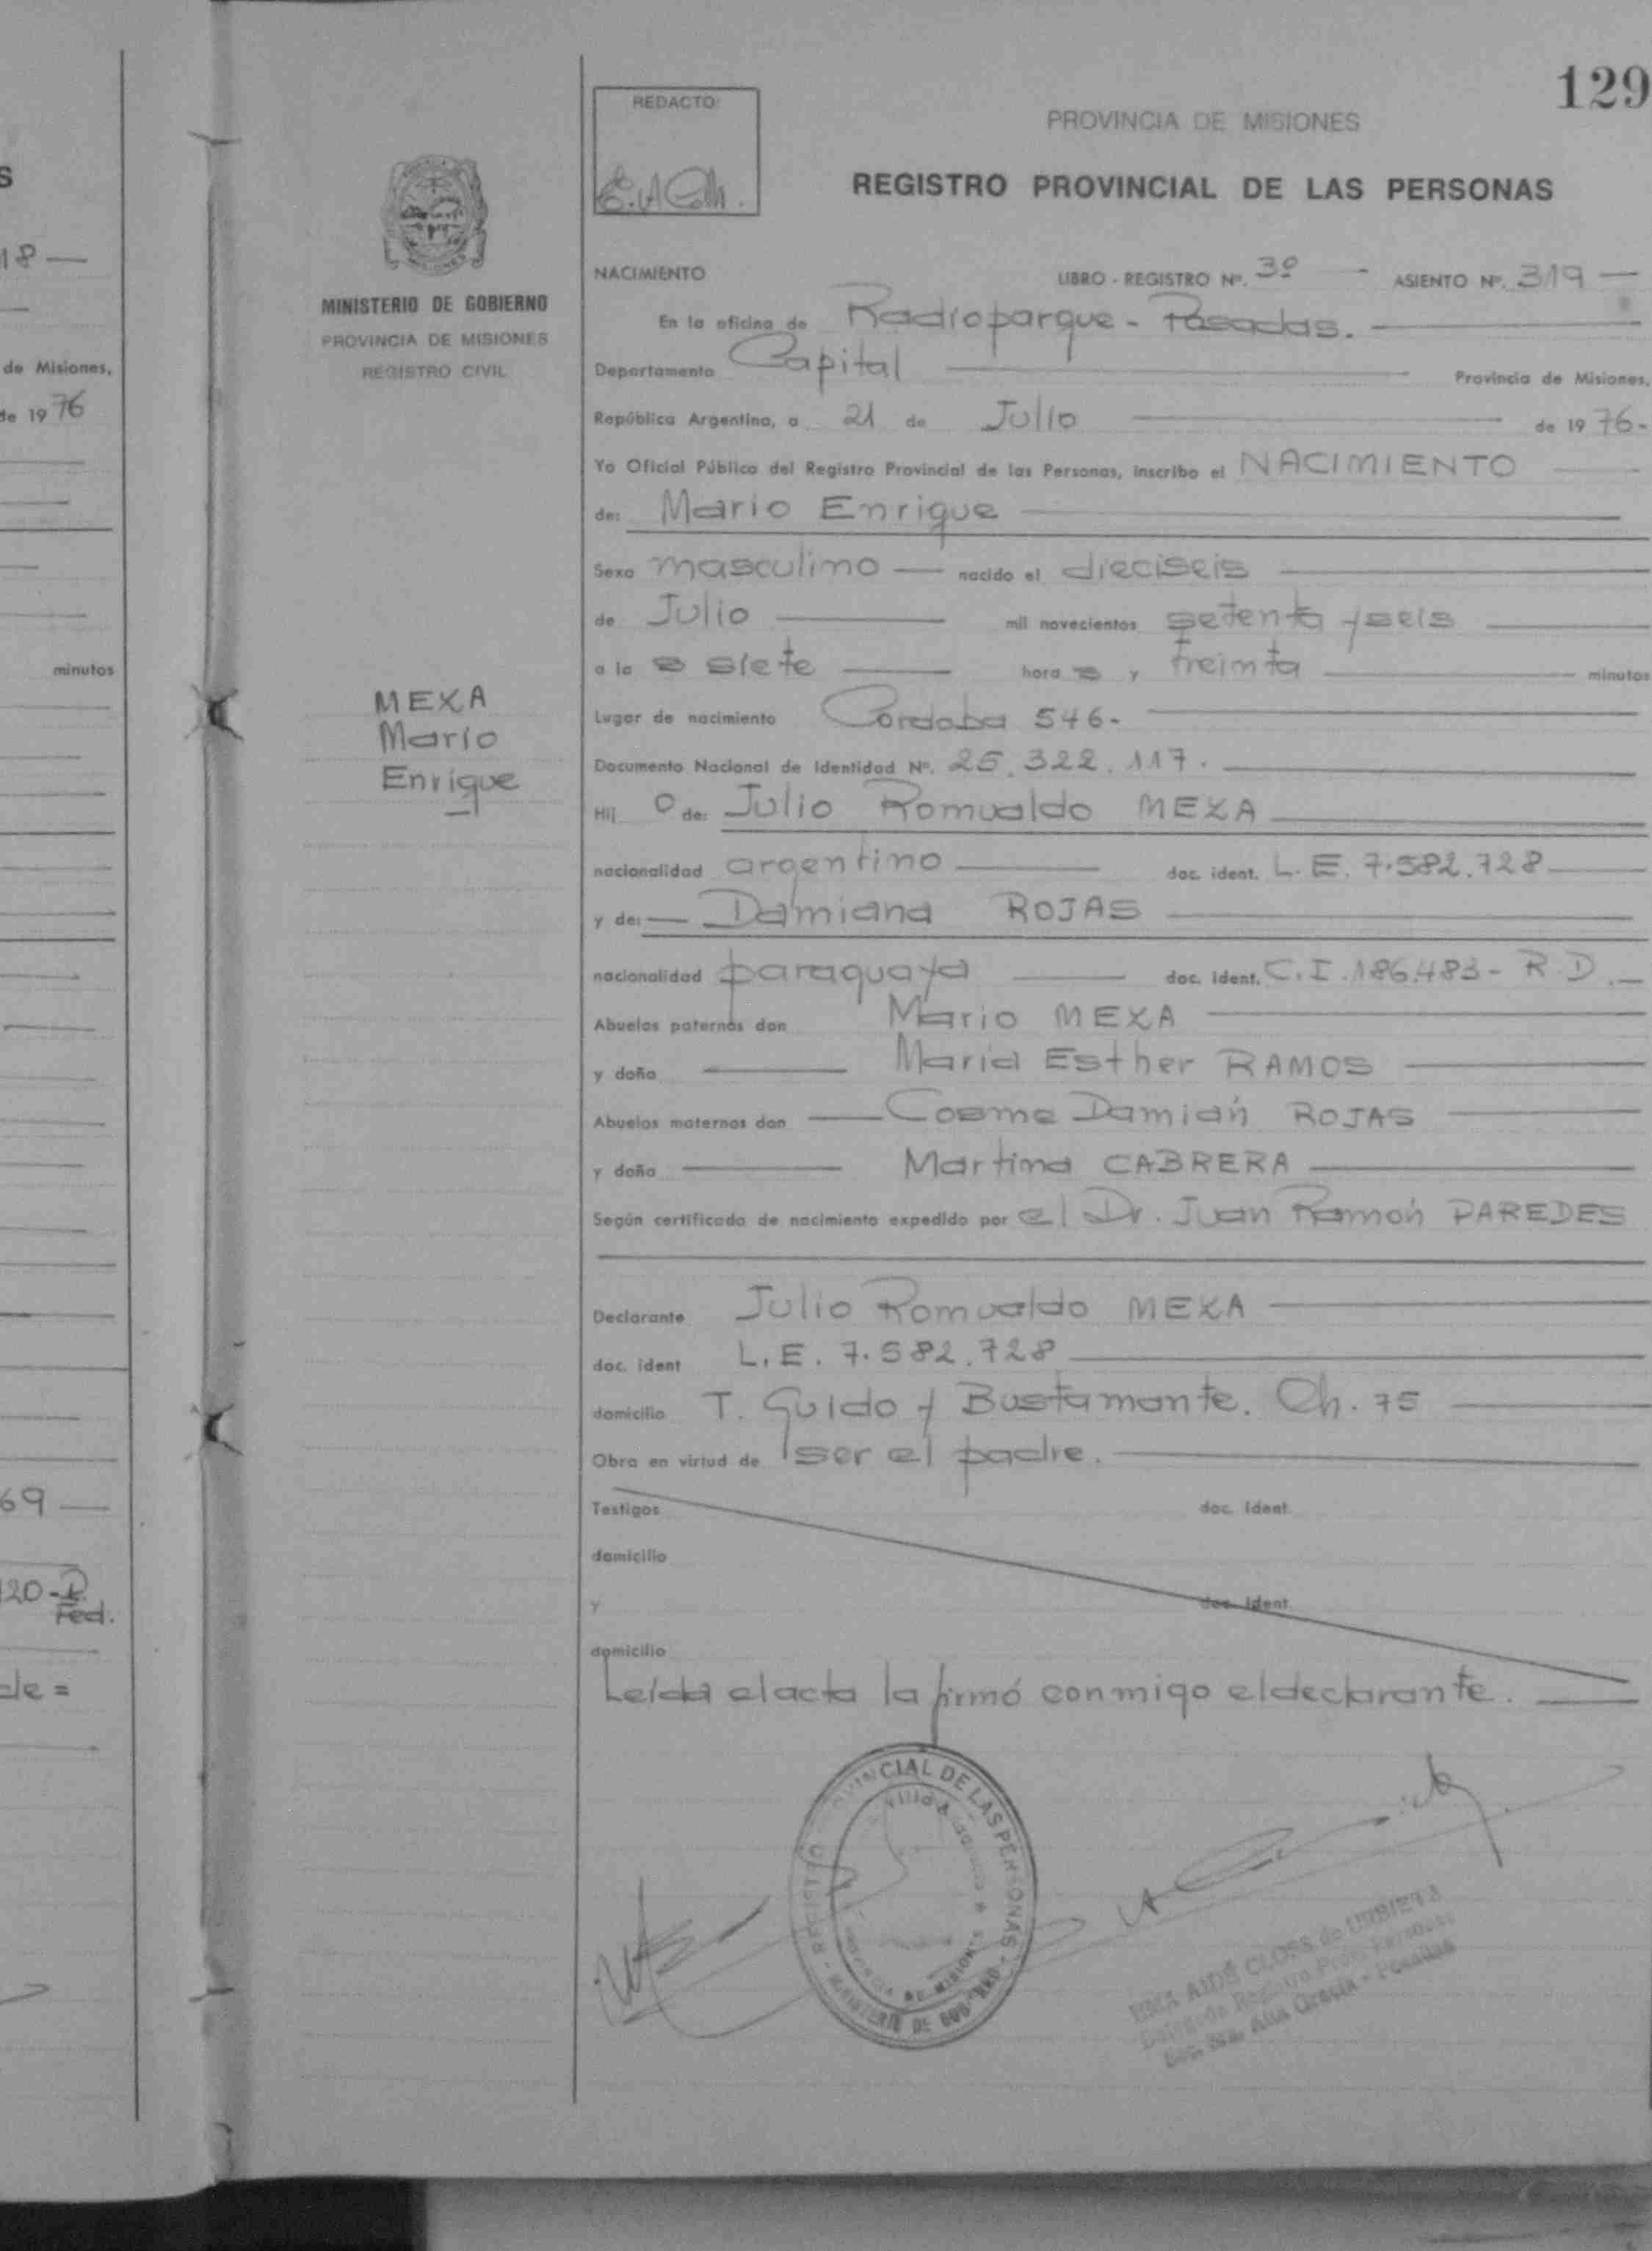 S
18 —
de Misiones,
de 19 76
minutos
69 —
120-P.
Fed.
de =
MINISTERIO DE GOBIERNO
PROVINCIA DE MISIONES
REGISTRO CIVIL
MEXA
Mario
Enrique
129
REDACTO
PROVINCIA DE MISIONES
REGISTRO PROVINCIAL DE LAS PERSONAS
NACIMIENTO LIBRO - REGISTRO Nº. 3º - ASIENTO Nº. 319 —
En la oficina de Radioparque - Posadas.
Departamento Capital Provincia de Misiones,
República Argentina, a 21 de Julio de 1976-
Yo Oficial Público del Registro Provincial de las Personas, inscribo el NACIMIENTO
de: Mario Enrique
Sexo masculino — nacido el dieciseis
de Julio mil novecientos setenta y seis
a la s siete hora s y treinta minutos
Lugar de nacimiento Córdoba 546-
Documento Nacional de Identidad Nº. 25.322.117.
Hij o de: Julio Romualdo MEXA
nacionalidad argentino doc. ident. L.E. 7.582.728
y de: — Damiana ROJAS
nacionalidad paraguaya doc. ident. C.I. 186.483 - R.D.
Abuelos paternos don Mario MEXA
y doña María Esther RAMOS
Abuelos maternos don Cosme Damián ROJAS
y doña Martina CABRERA
Según certificado de nacimiento expedido por el Dr. Juan Ramón PAREDES
Declarante Julio Romualdo MEXA
doc. ident L.E. 7.582.728
domicilio T. Guido y Bustamante. Ch. 75
Obra en virtud de ser el padre.
Testigos doc. ident.
domicilio
y doc. ident.
domicilio
Leída el acta la firmó conmigo el declarante.
REGISTRO PROVINCIAL DE LAS PERSONAS - MINISTERIO DE GOBIERNO -
Villa
DE MISIONES
AIDÉ CLOSS de URBIETA
Registro Prov. Personas
Alta Gracia - Posadas